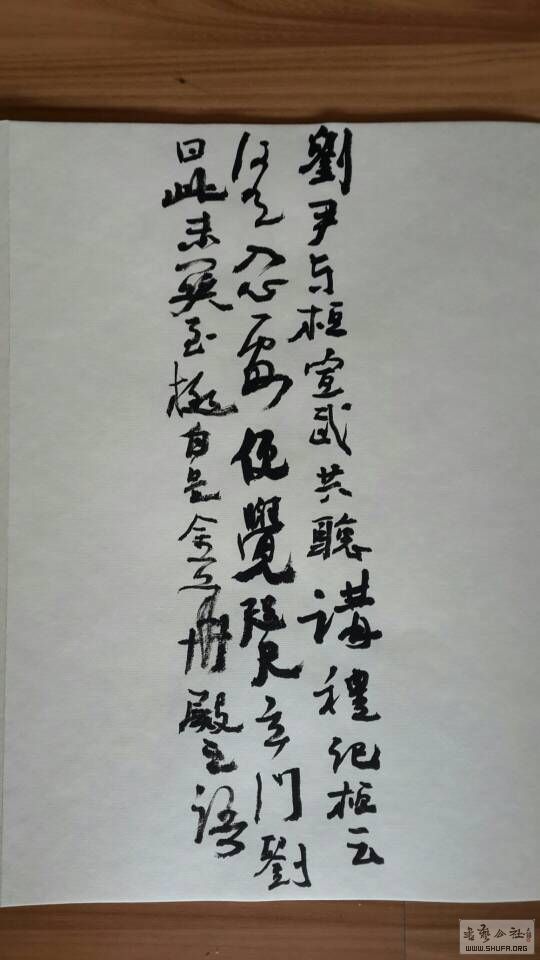 劉尹与桓宣武共聽講禮記桓云
时有入心處便覺咫尺玄門劉
曰此未関至極自是金華殿之語
书艺公社
WWW.SHUFA.ORG